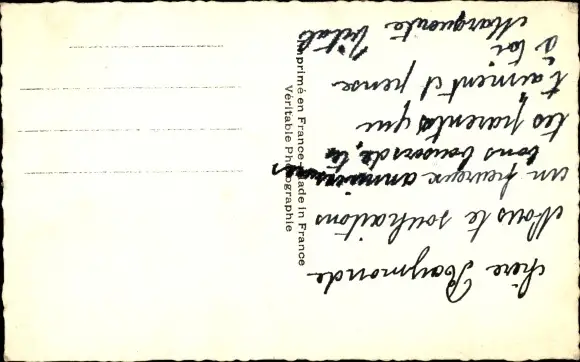 chère Raymonde
Nous te souhaitons
un heureux anniversaire
tons bonsorsde, te
tes parents que
t'aiment et pense
à toi
Marguerite Vital
Imprimé en France - Made in France
Véritable Photographie